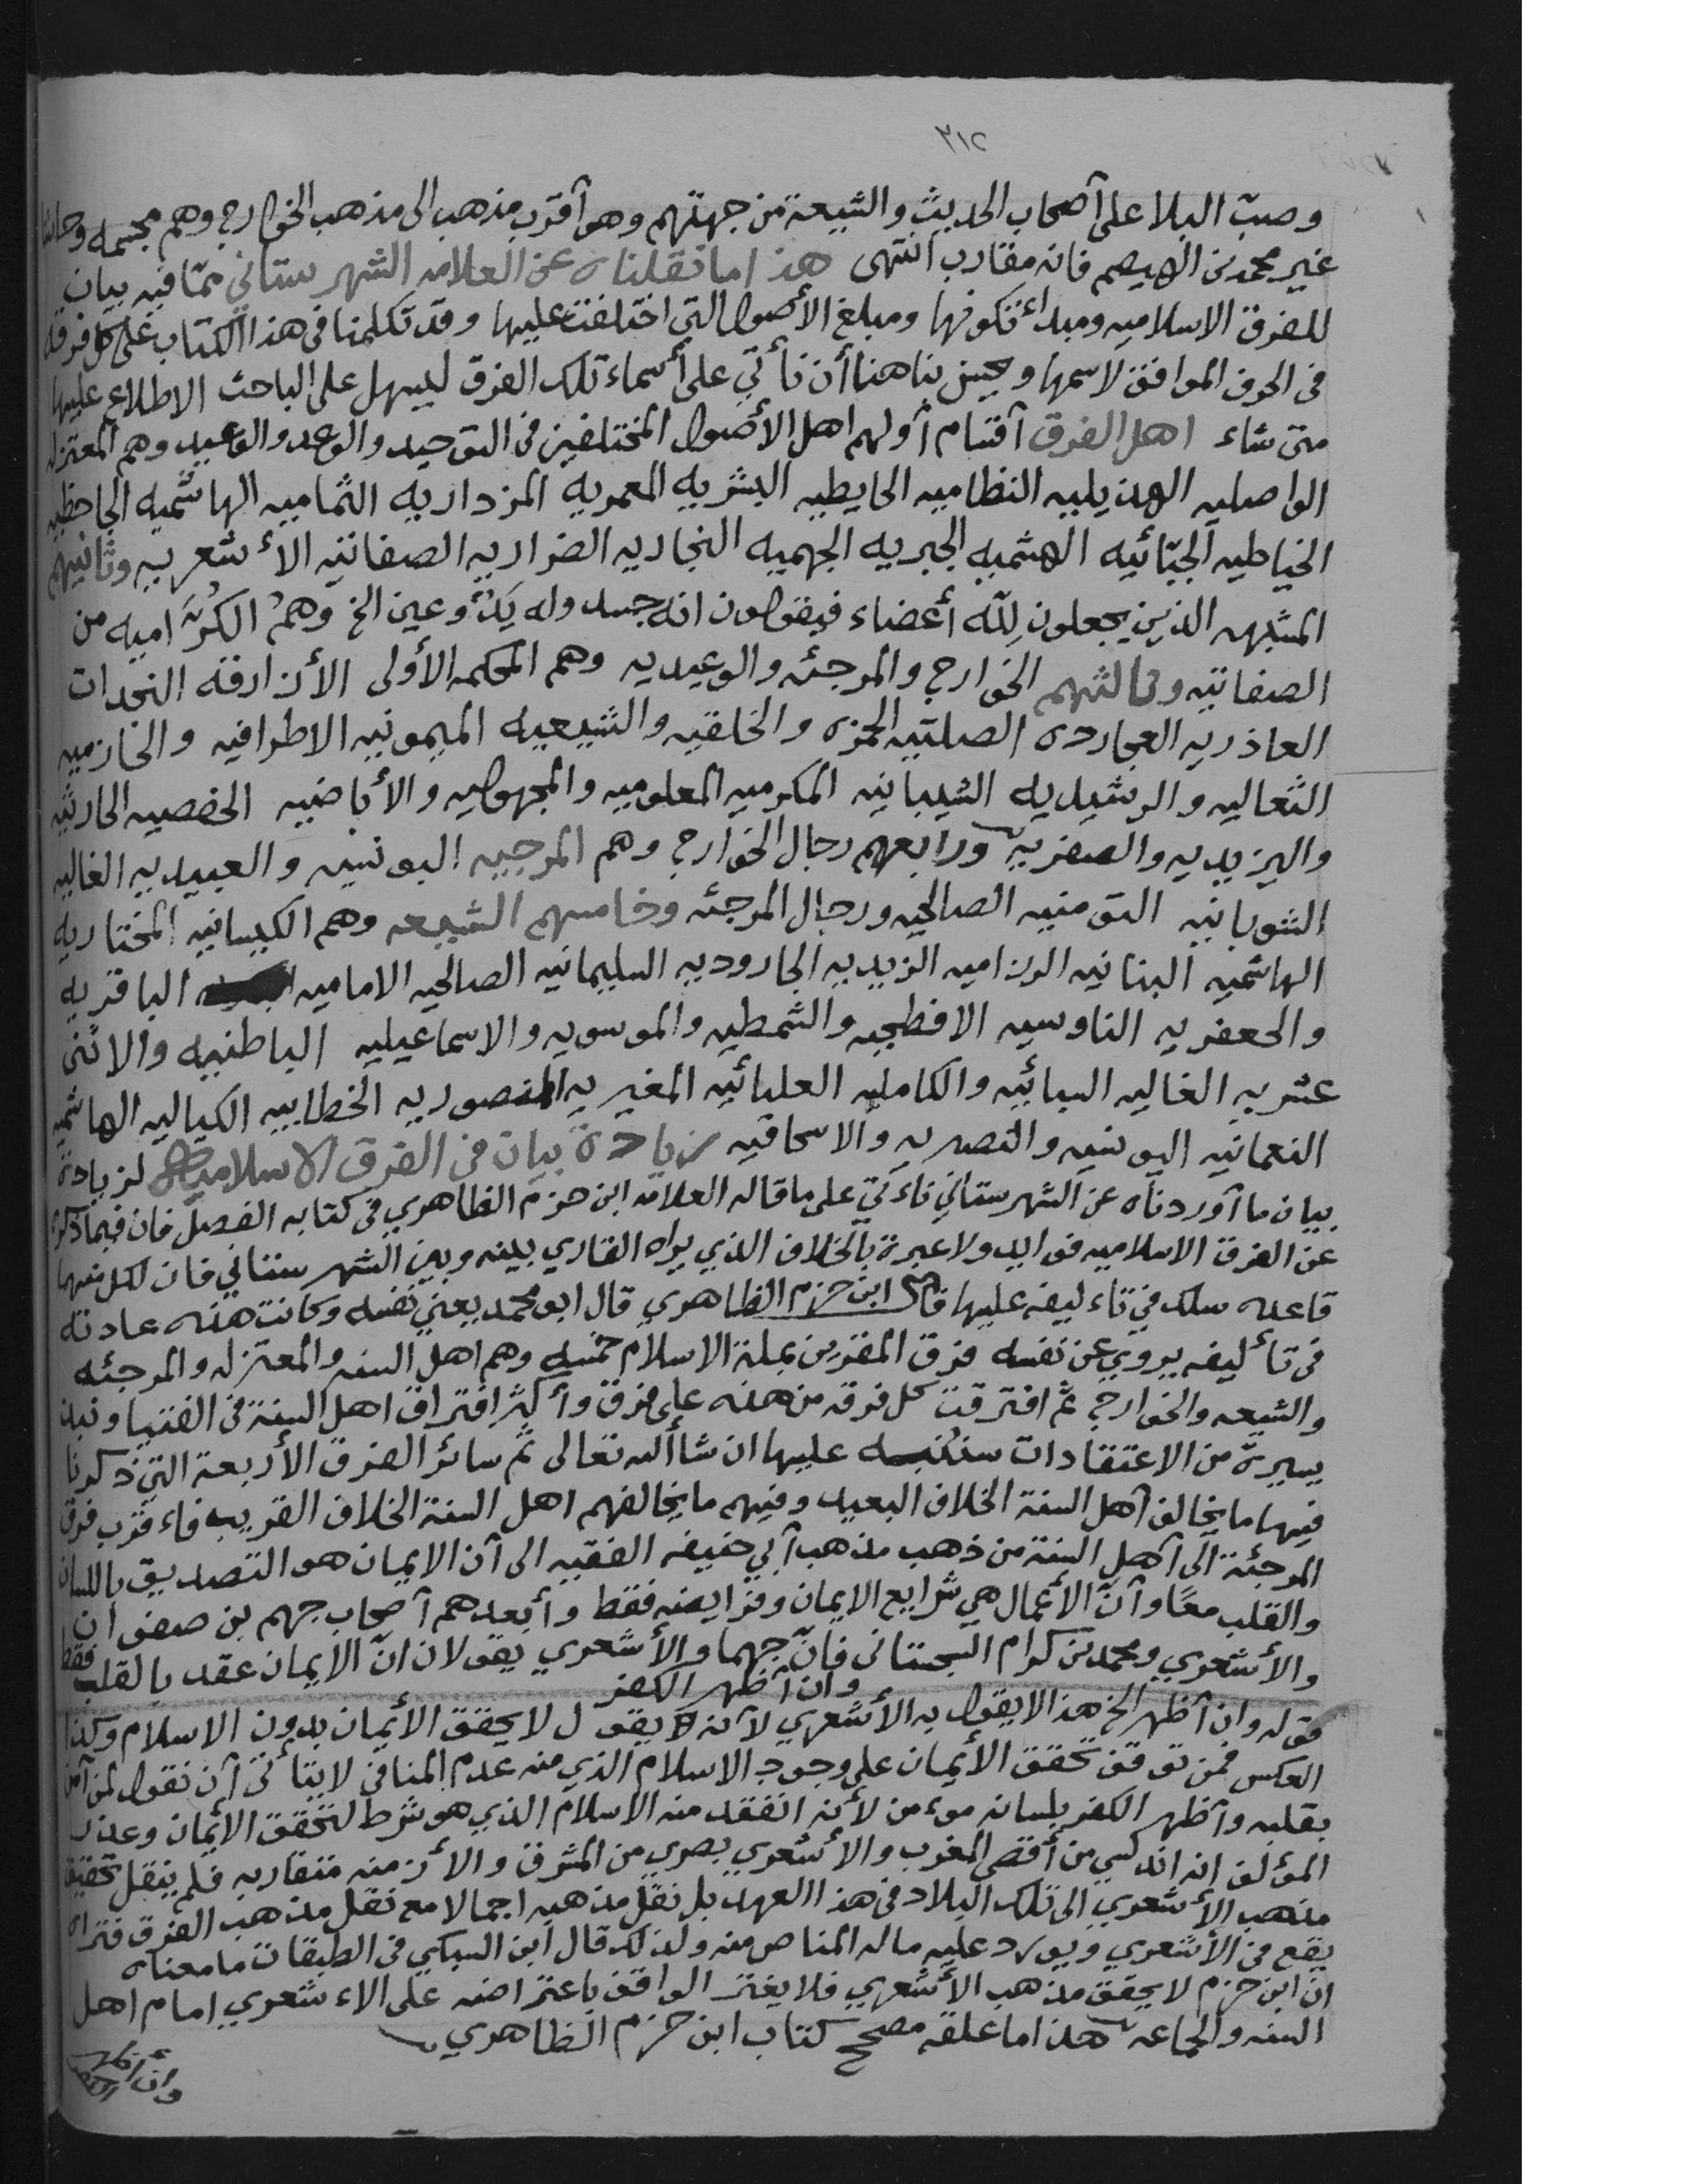 ٣١٢
وصبّ البلا على آصحاب الحديث والشيعة من جهتهم وهو آقرب مذهب الى مذهب الخوارج وهم مجسمه وحاشا
غير محمد بن الهيصم فانه مقارب انتهى هذا ما نقلناه عن العلامه الشهرستاني ممّا فيه بيان
للفرق الاسلاميه ومبداء تكونها ومبلغ الأصول التي اختلفت عليها وقد تكلمنا في هذا الكتاب على كل فرقه
في الحرف الموافق لاسمها ويحسن بنا هنا أن نأتي على أسماء تلك الفرق ليسهل على الباحث الاطلاع عليها
متى شاء اهل الفرق آقسام آولهم اهل الأصول المختلفين في التوحيد والوعد والوعيد وهم المعتزله
الواصليه الهذيليه النظاميه الحايطيه البشريه المعمريه المزداريه الثماميه الهاشميه الجاحظيه
الخياطيه الجبّائيه الهشميه الجبريه الجهميه النجاريه الضراريه الصفاتيه الأشعريه وثانيهم
المشبهه الذين يجعلون لِلّه أعضاء فيقولون انه جسد وله يَدٌ وعين الخ وهمُ الكرّاميه من
الصفاتيه وثالثهم الخوارج والمرجئه والوعيديه وهم المحكمه الأولى الأزارقه النجدات
العاذريه العجارده الصلتيه الحمزه والخلفيه والشيعيه الميمونيه الاطرافيه والخازميه
الثعاليه والرشيديه الشيبانيه المكرميه المعلوميه والمجهوليه والأباضيه الحفصيه الحارثيه
واليزيديه والصفريه ورابعهم رجال الخوارج وهم المرجيه اليونسيه والعبيديه الغاليه
الثوبانيه التومنيه الصالحيه ورجال المرجئه وخامسهم الشيعه وهم الكيسانيه المختاريه
الهاشميه البنانيه الرزاميه الزيديه الجاروديه السليمانيه الصالحيه الاماميه الباقريه
والجعفريه الناوسيه الافطحيه والشمطيه والموسويه والاسماعيليه الباطنيه والاثنى
عشريه الغاليه السبائيه والكامليه العلبائيه المغيريه المنصوريه الخطابيه الكياليه الهاشميه
النعمانيه اليونسيه والنصريه والاسحاقيه زيادة بيان في الفرق الاسلاميه لزيادة
بيان ما آوردناه عن الشهرستاني نأتي على ما قاله العلامه ابن حزم الظاهري في كتابه الفصل فان فيما ذكره
عن الفرق الاسلاميه فوايد ولا عبرة بالخلاف الذي يراه القاري بينه وبين الشهرستاني فان لكل منهما
قاعده سلك في تاءليفه عليها قال ابن حزم الظاهري قال ابو محمد يعني نفسه وكانت هذه عادته
في تأليفه يروي عن نفسه فرق المقرين بملة الاسلام خمسه وهم اهل السنه والمعتزله والمرجئه
والشيعه والخوارج ثم افترقت كل فرقه من هذه على فرق وأكثر افتراق اهل السنة في الفتيا ونبذ
يسيرة من الاعتقادات سننبه عليها ان شاألله تعالى ثم سائر الفرق الأربعة التي ذكرنا
فيها ما يخالف آهل السنة الخلاف البعيد وفيهم ما يخالفهم اهل السنة الخلاف القريب فاءقرب فرق
المرجئة الى آهل السنة من ذهب مذهب آبي حنيفه الفقيه الى آن الايمان هو التصديق باللسان
والقلب معًا وآن الأعمال هي شرايع الايمان وفرايضه فقط وأبعدهم آصحاب جهم بن صفوان
والأشعري ومحمد بن كرام السجستاني فانّ جهما والأشعري يقولان انّ الايمان عقد بالقلب فقط
وان اظهر الكفر
قوله وان آظهر الخ هذا لا يقول به الأشعري لآنه يقول لا يحقق الأيمان بدون الاسلام وكذا
العكس فمن توقف تحقق الأيمان على وجود الاسلام الذي منه عدم المنافي لا يتأتى آن نقول لمن آمن
بقلبه وآظهر الكفر بلسانه موءمن لأنه انفقد منه الاسلام الذي هو شرط لتحقق الايمان وعذر
المؤلف انه اندلسي من أقصى المغرب والأشعري بصري من المشرق والأزمنه متقاربه فلم ينقل تحقيق
مذهب الأشعري الى تلك البلاد في هذا العهد بل نقل مذهبه اجمالا مع نقل مذهب الفرق فتراه
يقع في الأشعري ويورد عليه ما له المناص منه ولذلك قال ابن السبكي في الطبقات ما معناه
ان ابن حزم لا يحقق مذهب الأشعري فلا يغتر الواقف باعتراضه على الاءشعري امام اهل
السنه والجاعه هذا ما علقه مصحح كتاب ابن حزم الظاهري
وان أظهر
الكفر